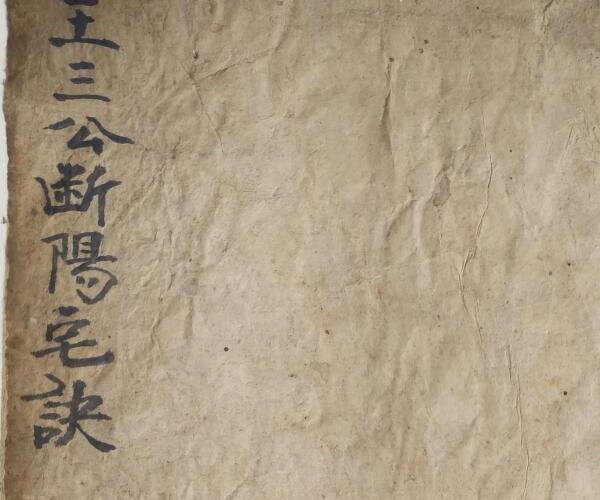 三公断陽宅訣